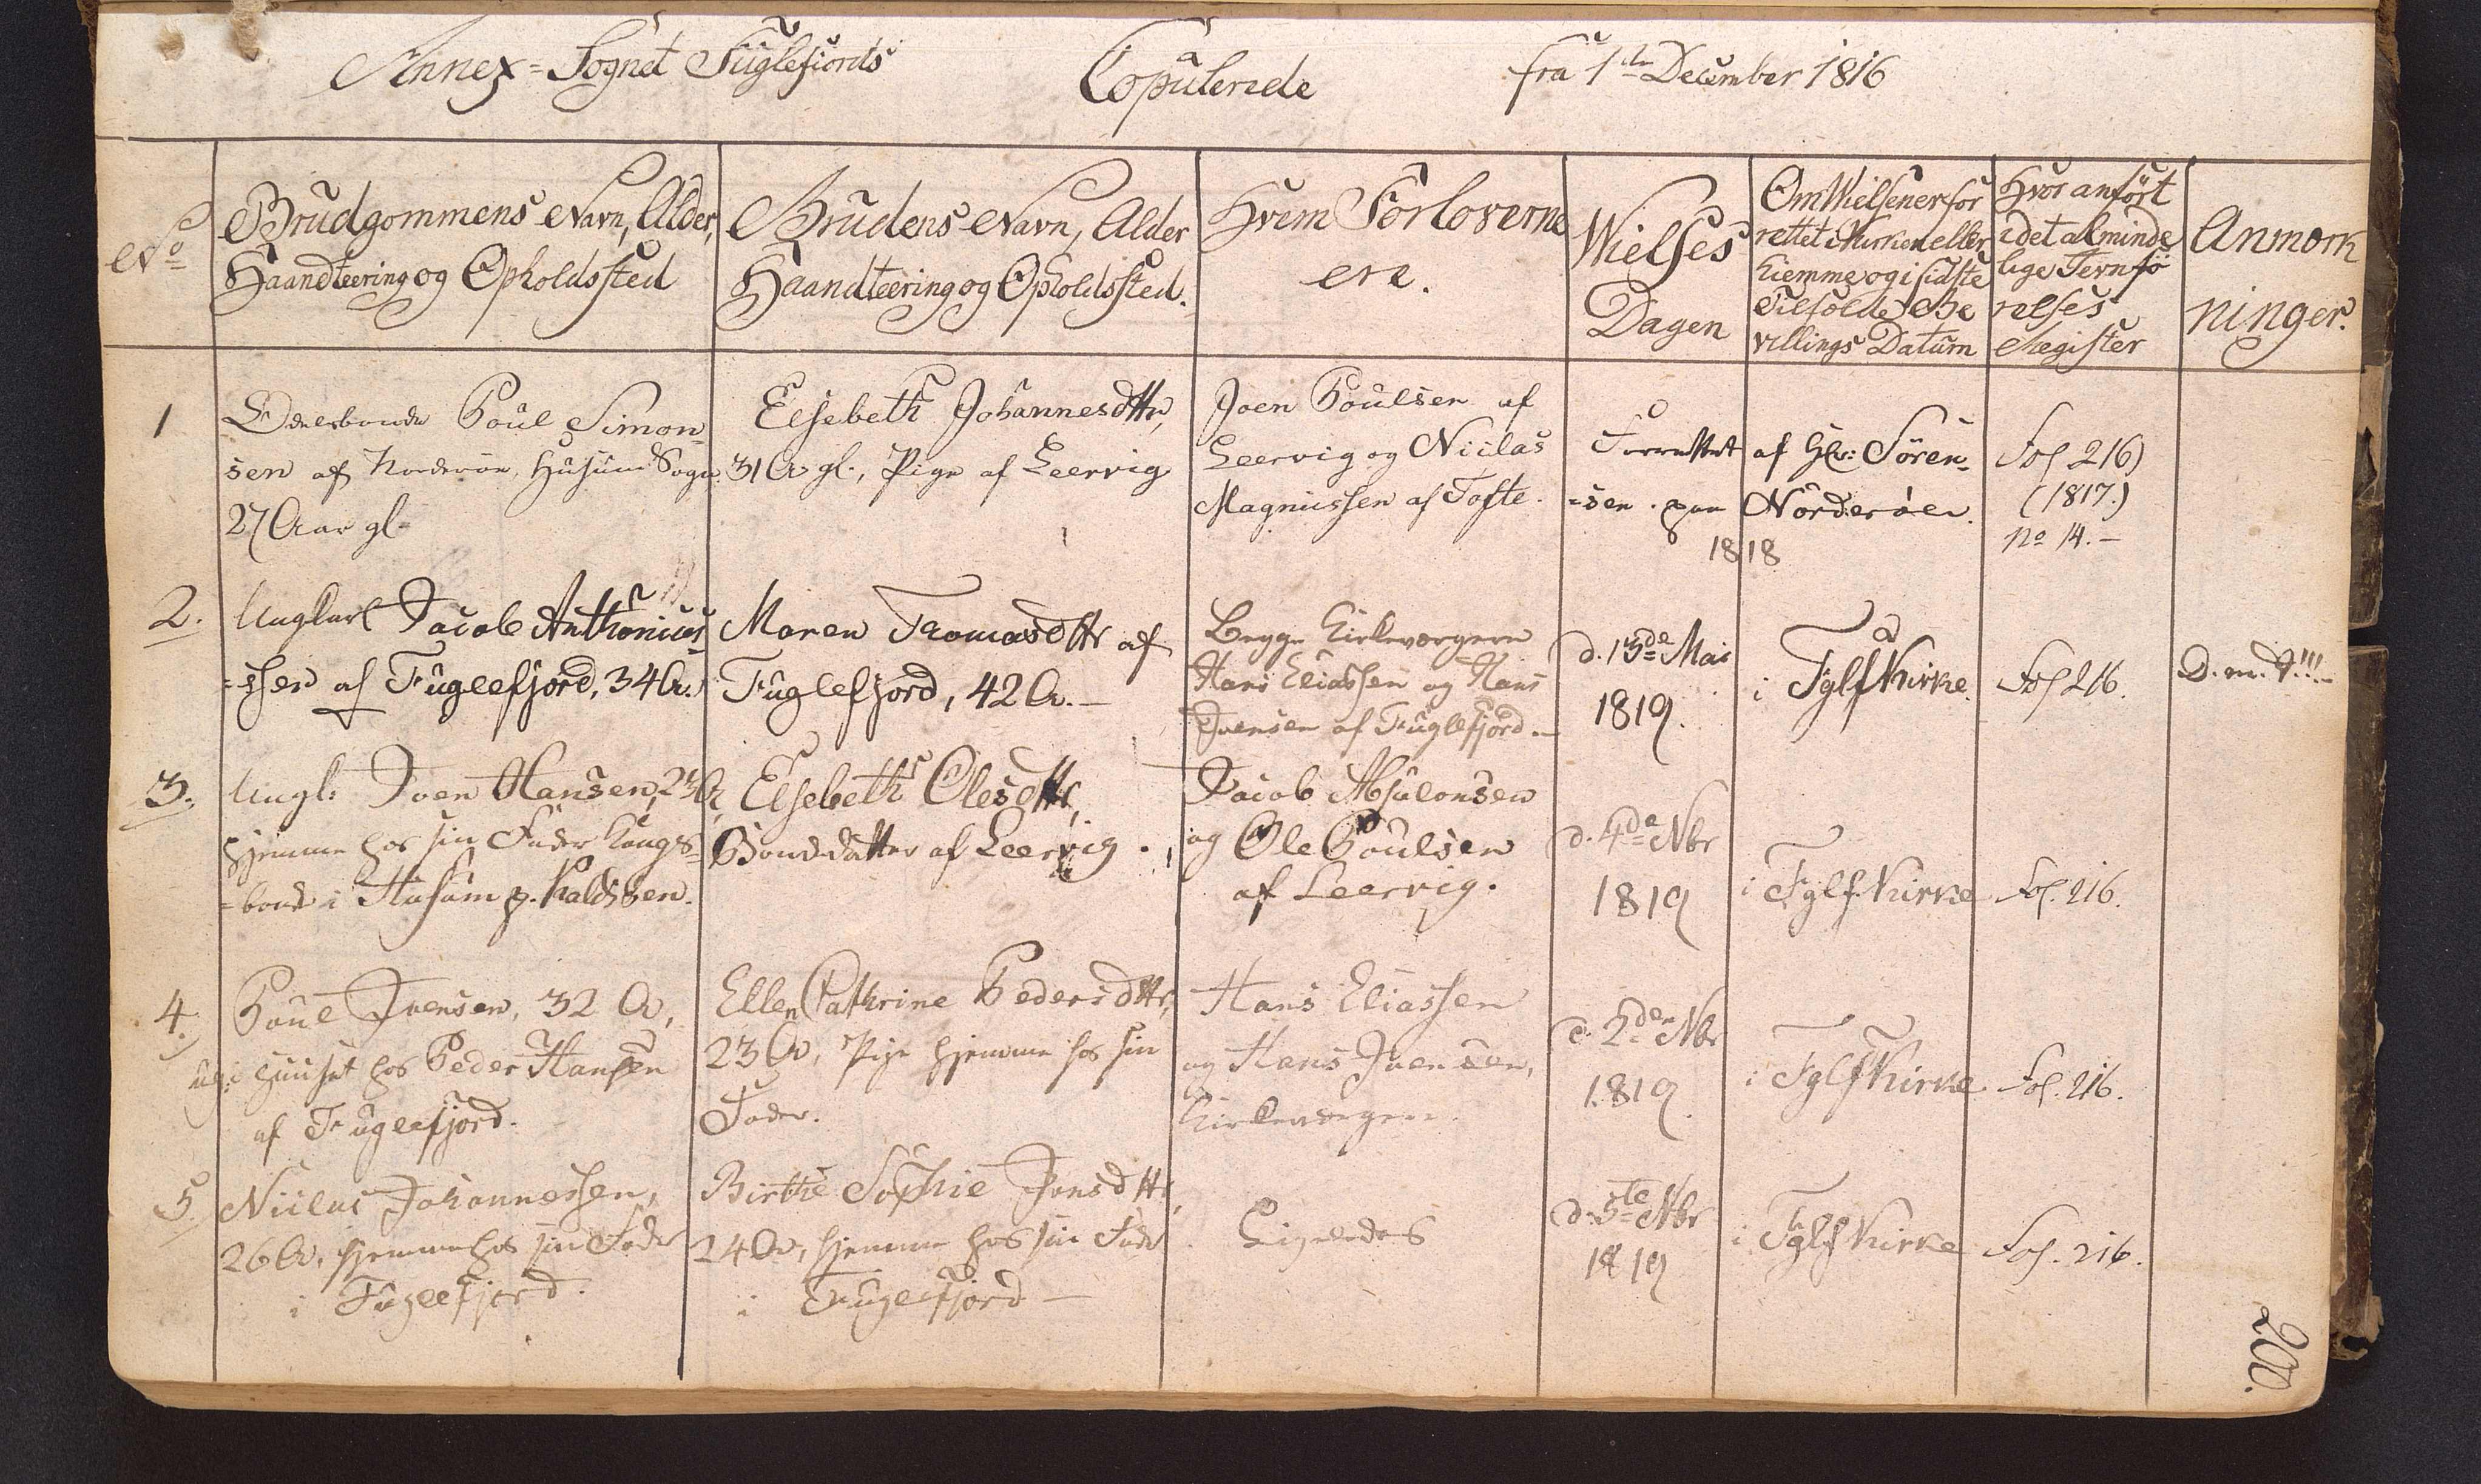 Annex=Sognet Fuglefiords Copulerede fra 1ste December 1816
No
Brudgommens Navn, Alder,
Haandteering og Opholdssted
Brudens Navn, Alder
Haandteering og Opholdssted.
Hvem Forloverne
ere.
Wielses
Dagen
Om Wielsen er for
rettet i Kirken eller
hiemme og i sidste
Tilfælde Be
villings Datum
Hvor anført
i det alminde
lige Jevnfø
relses
Register
Anmærk
ninger.
1
Odelsbonde Poul Simon-
sen af Norderøe, Husum Sogn
27 Aar gl.
Elsebeth Johannesdttr,
31 A gl., Pige af Leervig
Joen Poulsen af
Leervig og Niclas
Magnussen af Tofte.
Forrettet af Hr: Søren-
=sen paa Norderøen.
1818
Fol 216)
(1817.)
no 14.-
2.
Ungkarl Jacob Anthonius-
=sen af Fuglefjord, 34 A.
Maren Thomasdttr af
Fuglefjord, 42 A.-
Begge Kirkeværgerne
Hans Eliassen og Hans
Joensen af Fuglefjord.-
d. 13de Mai
1819.
i Fglf Kirke.
Fol 216.
D. m. !!!-
3.
Ungk: Joen Hansen, 23 A,
hjemme hos sin Fader Kongs-
=bonde i Husum p. Kalds en.
Elsebeth Olesdttr,
Bondedatter af Leervig.
Jacob Absalonsen
og Ole Poulsen
af Leervig.
d. 4de Nbr
1819
i Fglf. Kirke
Fol. 216.
4.
Poul Joensen, 32 A,
i Huuset hos Peder Hansen
af Fuglefjord.
Ellen Cathrine Pedersdttr,
23 A, Pige hjemme hos sin
Fader.
Hans Eliassen
og Hans Joensen,
Kirkeværgere.
d. 2den Nbr
1819
i Fglf Kirke
Fol. 216.
5.
Niclas Johannessen,
26 A, hjemme hos sin Fader
i Fuglefjord.
Birthe Sophie Jonsdttr,
24 A, hjemme hos sin Fader
i Fuglefjord-
Ligeledes
d. 5te Nbr
1819
i Fglf Kirke
Fol. 216.
200.